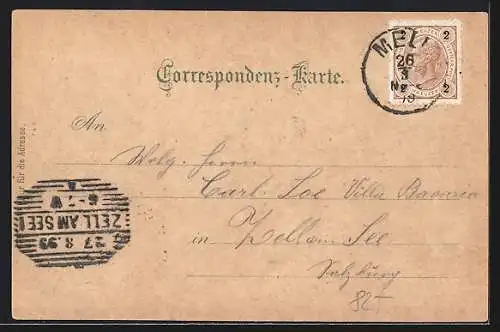 Correspondenz-Karte.
MEL
26
8
2
2
An
Wolg. Herrn
Carl Loe Villa Bavaria
in Zell am See
Salzburg
82-
für die Adresse.
ZELL AM SEE
27.8.99